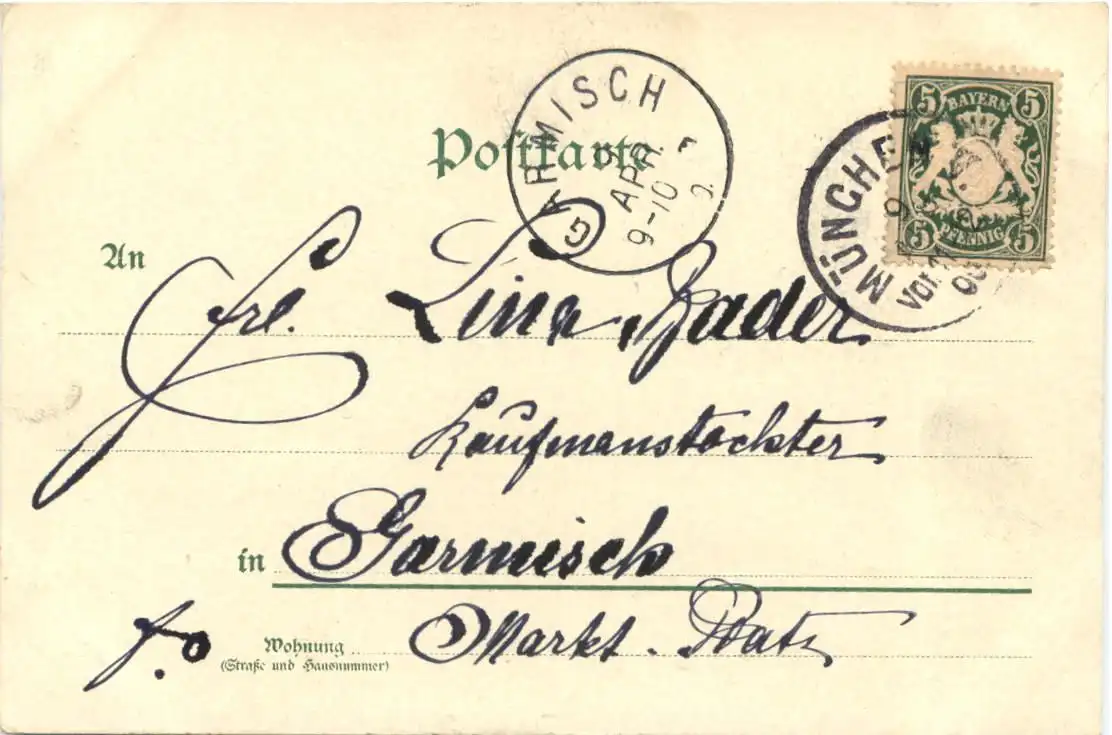 Postkarte
GARMISCH
9
APR.
9-10
MÜNCHEN
9
Vor.
00
5 BAYERN 5
5 PFENNIG 5
An Frl. Lina Bader
Kaufmanstochter
in Garmisch
Wohnung Markt-Platz
(Straße und Hausnummer)